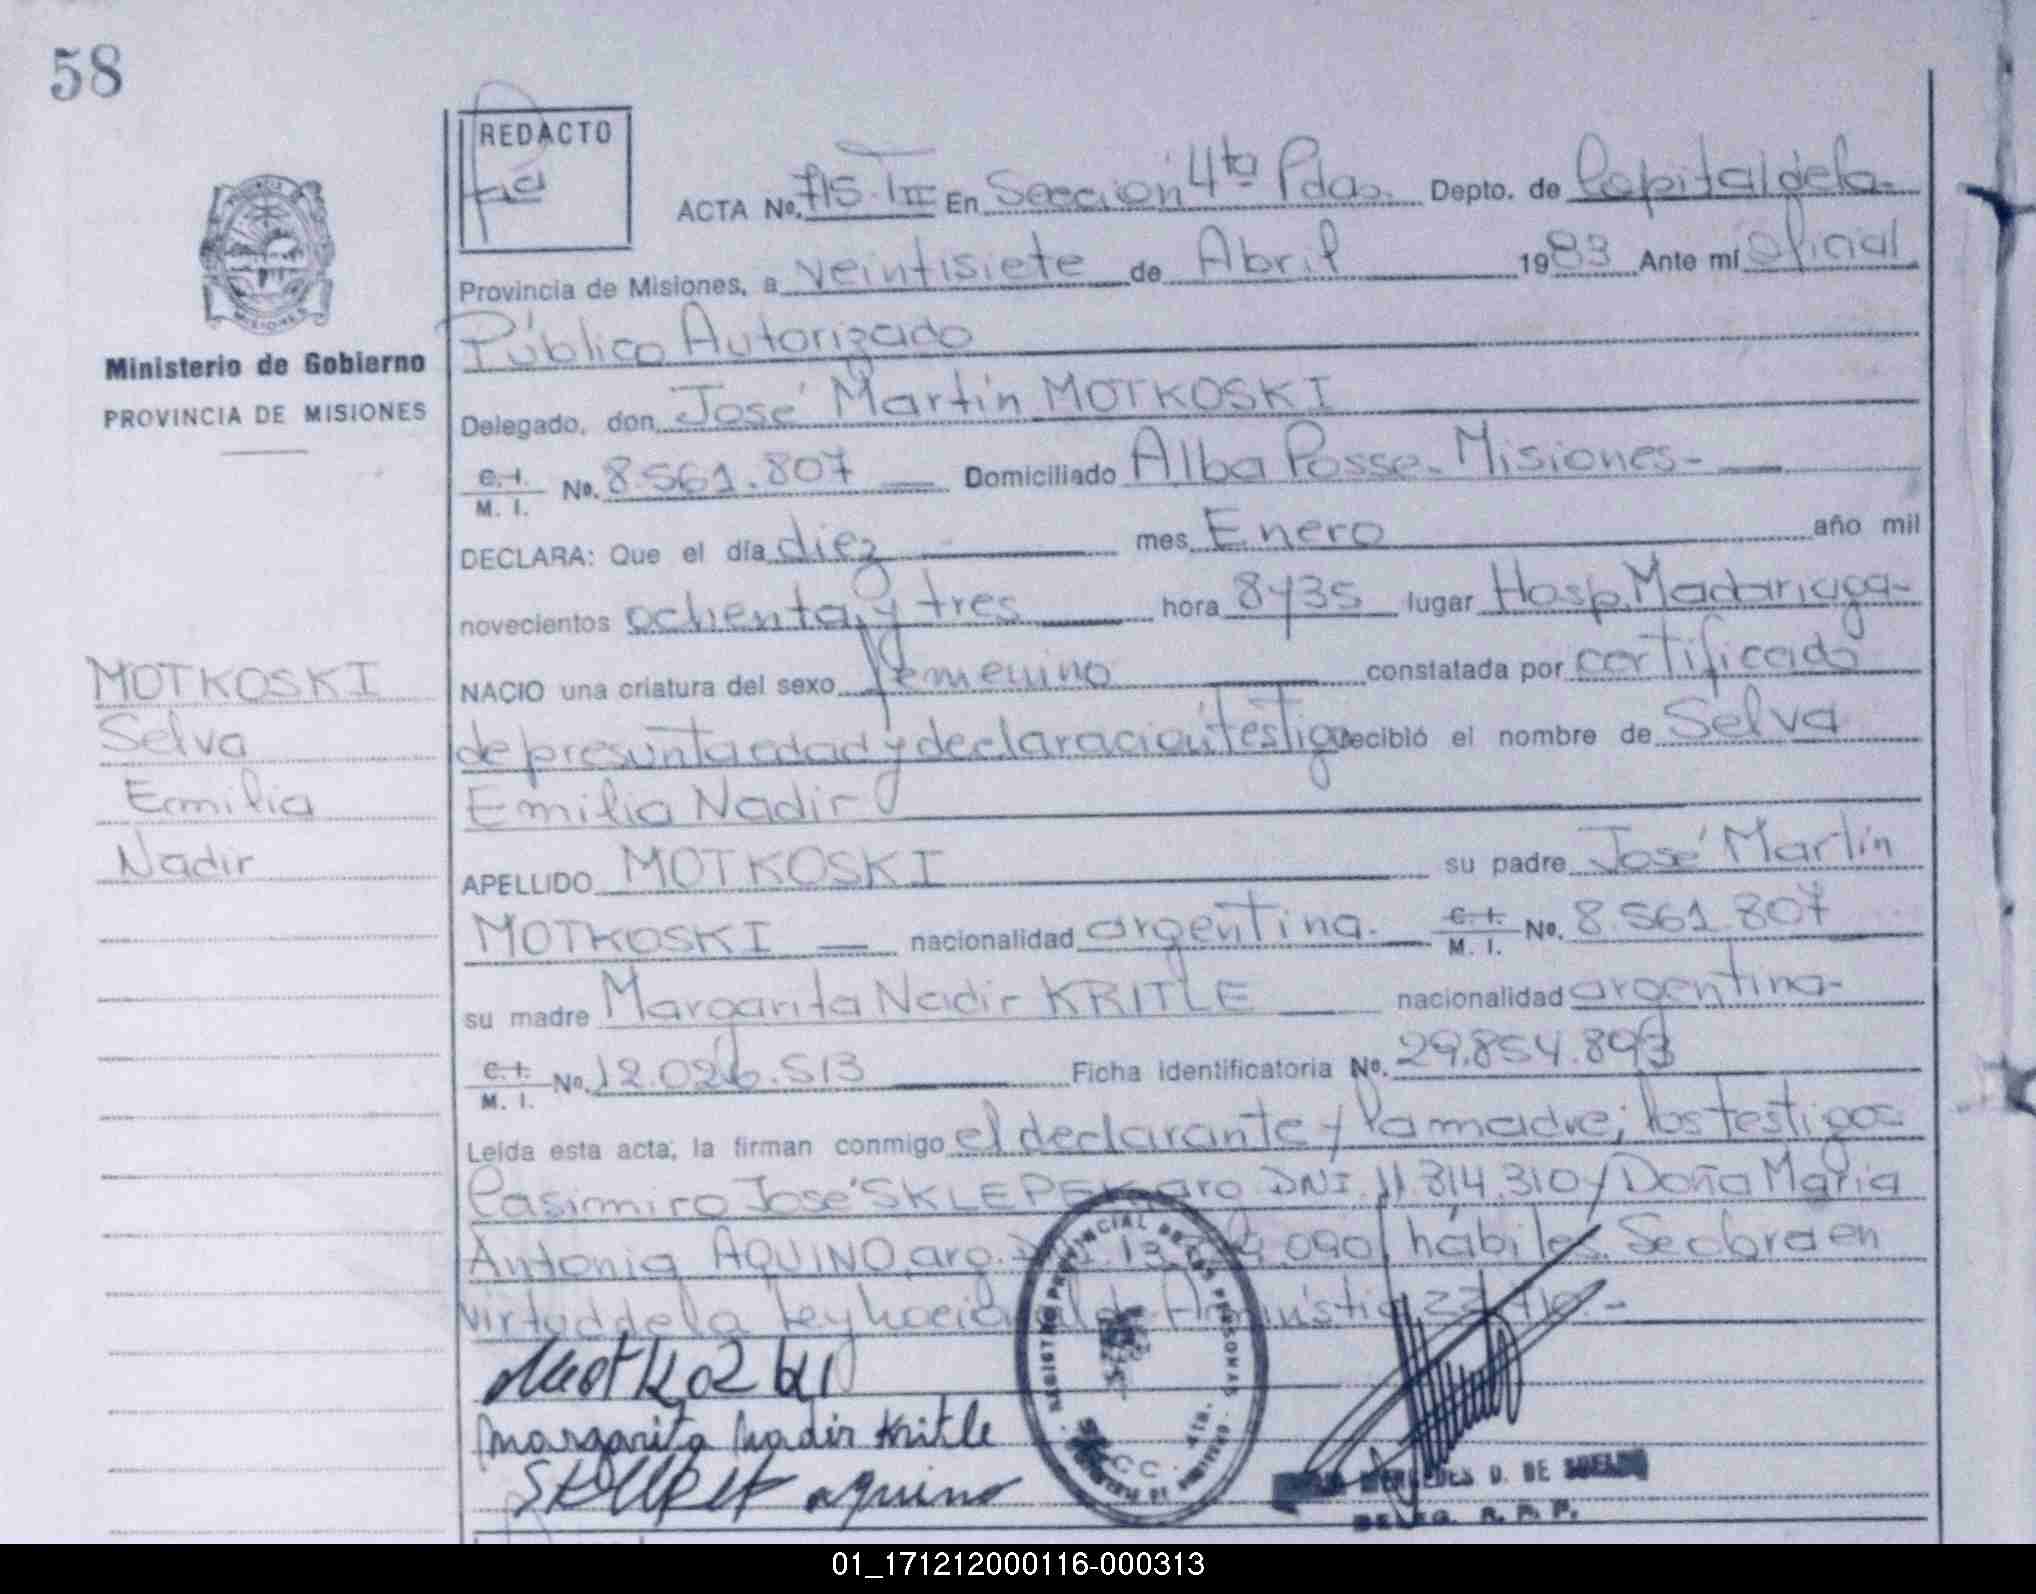 58
REDACTO
ACTA No. 715. TIII En Sección 4ta Pdas. Depto. de Capital de la
Provincia de Misiones, a veintisiete de Abril 1983 Ante mí Oficial
Público Autorizado
Ministerio de Gobierno
PROVINCIA DE MISIONES
Delegado, don José Martín MOTKOSKI
C.I. M. I. No. 8.561.807 Domiciliado Alba Posse. Misiones-
DECLARA: Que el día diez mes Enero año mil
novecientos ochenta y tres hora 8y35 lugar Hosp. Madariaga-
NACIO una criatura del sexo femenino constatada por certificado
de presunta edad y declaración testigo recibió el nombre de Selva
Emilia Nadir
MOTKOSKI
Selva
Emilia
Nadir
APELLIDO MOTKOSKI su padre José Martín
MOTKOSKI nacionalidad argentina. C.I. M. I. No. 8.561.807
su madre Margarita Nadir KRITLE nacionalidad argentina-
C.I. M. I. No. 12.026.513 Ficha identificatoria No. 29.854.893
Leída esta acta, la firman conmigo el declarante y la madre; los testigos
Casimiro José SKLEPEK arg DNI. 11.814.310 y Doña Maria
Antonia AQUINO, arg. 090 hábiles. Se labra en
virtud de la Ley Nacional de Amnistia
Motkoski
Margarita Nadir Kritle
Sklepek aquino
REGISTRO PROVINCIAL DE LAS PERSONAS
MERCEDES D. DE
DELEG. R. P. P.
01_171212000116-000313